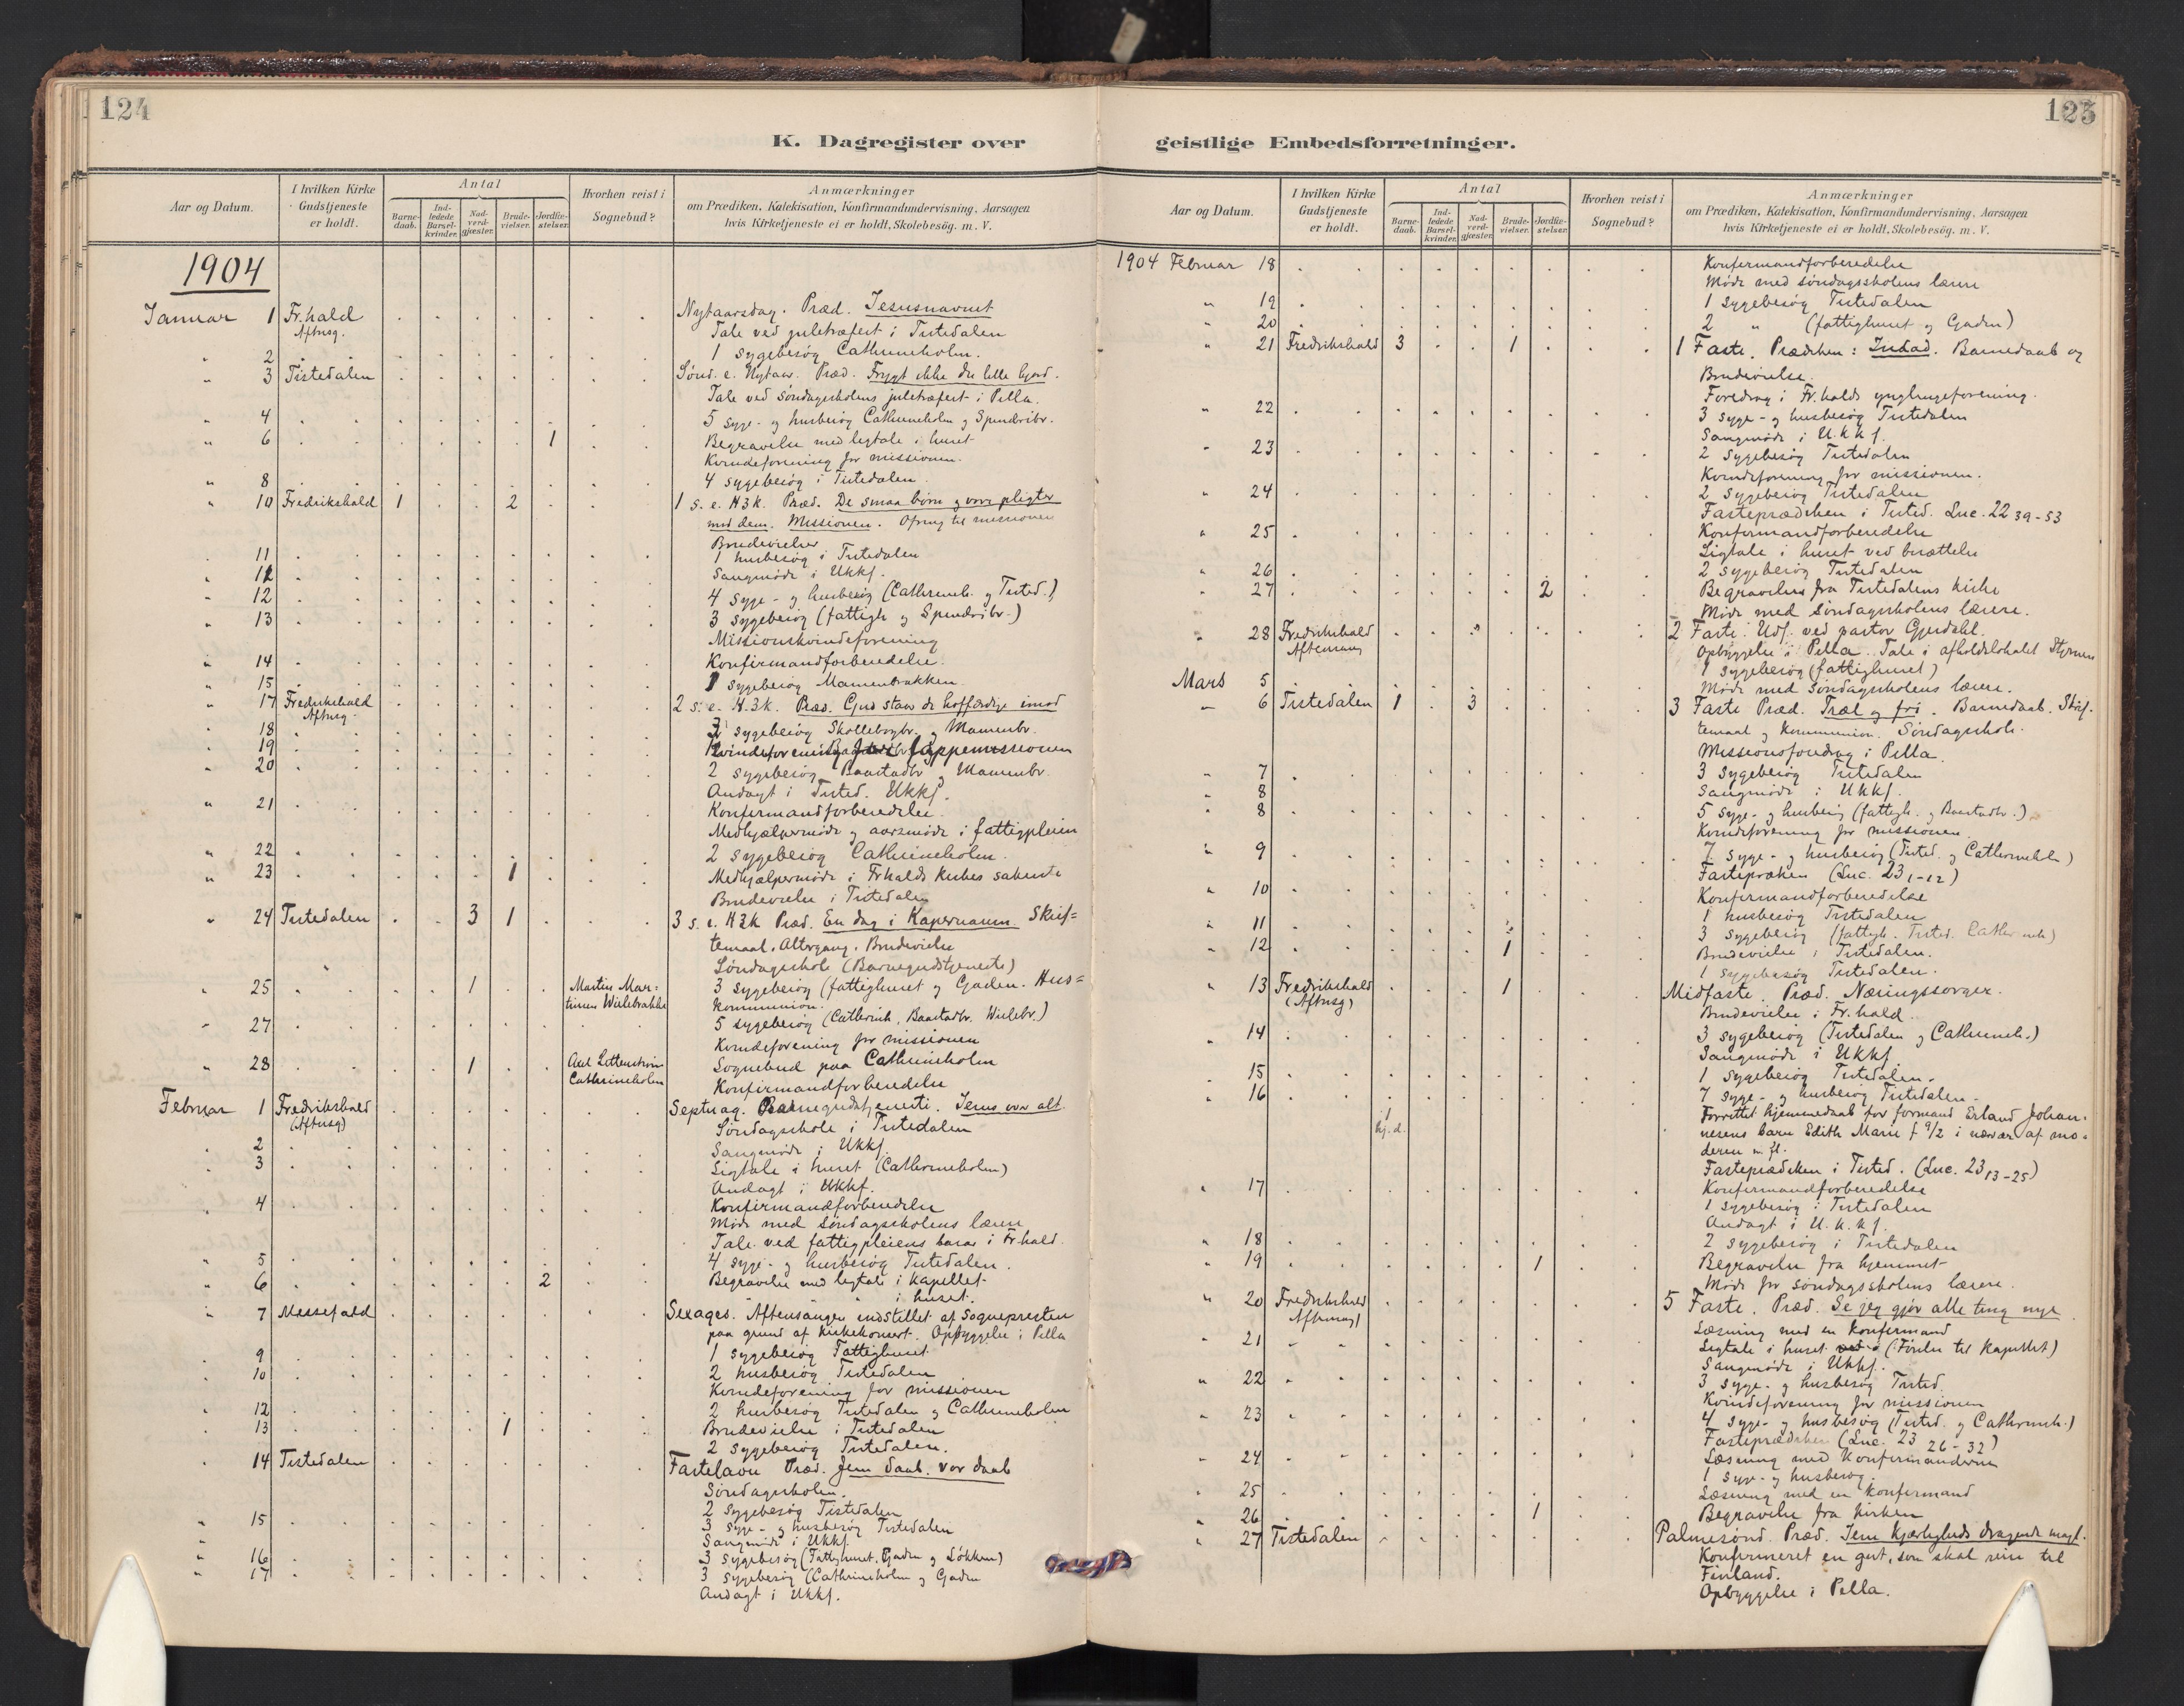 124
K. Dagregister over
Aar og Datum.
I hvilken Kirke Gudstjeneste er holdt.
Antal
Barnedaab.
Indledede Barselkvinder.
Nadverdgjæster.
Brudevielser.
Jordfæstelser.
Hvorhen reist i Sognebud?
Anmærkninger
om Prædiken, Katekisation, Konfirmandundervisning, Aarsagen
hvis Kirketjeneste ei er holdt, Skolebesög. m. V.
1904
Januar 1 Fr.hald Aftnsg. Nytaarsdag. Præd. Jesusnavnet
Tale ved juletræfest i Tistedalen
" 2 1 sygebesøg Cathrineholm.
" 3 Tistedalen Sønd. e. Nytaar. Præd. Frygt ikke du lille hjord.
Tale ved søndagsskolens juletræfest i Pella.
" 4 5 syge- og husbesøg Cathrineholm og
" 6 1 Begravelse med ligtale i huset
Kvindeforening for missionen.
" 8 4 sygebesøg i Tistedalen.
" 10 Fredrikshald 1 2 1 s. e. H3k. Præd. De smaa børn og vore pligter
mod dem. Missionen. Ofring til missionen
Brudevielser
" 11 1 husbesøg i Tistedalen
Sangmøde i Ukkf.
" 12 4 syge- og husbesøg (Cathrineh. og Tisted.)
" 13 3 sygebesøg (fattigh. og
Missionskvindeforening
" 14 Konfirmandforberedelse.
" 15 1 sygebesøg Mamenbrakken.
" 17 Fredrikshald Aftnsg. 2 s. e. H.3k. Præd. Gud staar de hoffærdige imod
" 18 2 sygebesøg og Mamenbr.
" 19 Kvindeforening for lappemissionen
" 20 2 sygebesøg Baastadbr. og Mamenbr.
Andagt i Tisted. Ukkf.
" 21 Konfirmandforberedelse.
Medhjælpermøde og aarsmøde i fattigpleien
" 22 2 sygebesøg Cathrineholm.
" 23 1 Medhjælpermøde i Frhalds kirkes sakristi
Brudevielse i Tistedalen
" 24 Tistedalen 3 1 3 s. e. H3k Præd. En dag i Kapernaum. Skrif=
temaal. Altergang. Brudevielse
Søndagsskole (Barnegudstjeneste)
" 25 1 Martin Mar= tinsen Wielebrakke 3 sygebesøg (fattighuset og Gaden. Hus=
kommunion.
" 27 5 sygebesøg (Cathrineh, Baastadbr. Wielebr.)
Kvindeforening for missionen
" 28 1 Axel Cathrineholm Sognebud paa Cathrineholm
Konfirmandforberedelse
Februar 1 Fredrikshald (Aftnsg) Septuag. Barnegudstjeneste. Jesus over alt.
Søndagsskole i Tistedalen
" 2 Sangmøde i Ukkf.
" 3 Ligtale i huset (Cathrineholm)
Andagt i Ukkf.
" 4 Konfirmandforberedelse
Møde med søndagsskolens lærere
Tale ved fattigpleiens basar i Fr.hald.
" 5 4 syge- og husbesøg Tistedalen.
" 6 2 Begravelse med ligtale i kapellet.
" " " i huset.
" 7 Messefald Sexages. Aftensangen indstillet af Sognepresten
paa grund af kirkekonsert. Opbyggelse i Pella
" 9 1 sygebesøg Fattighuset
" 10 2 husbesøg Tistedalen
Kvindeforening for missionen
" 12 2 husbesøg Tistedalen og Cathrineholm
" 13 1 Brudevielse i Tistedalen
2 sygebesøg Tistedalen.
" 14 Tistedalen Fastelavn Præd. Jesu daab. vor daab
Søndagsskolen.
2 sygebesøg Tistedalen
" 15 3 syge- og husbesøg Tistedalen
Sangmøde i Ukkf.
" 16 3 sygebesøg (Fattighuset, Gaden og Løkken)
" 17 3 sygebesøg (Cathrineholm og Gaden
Andagt i Ukkf.
125
geistlige Embedsforretninger.
Aar og Datum.
I hvilken Kirke Gudstjeneste er holdt.
Antal
Barnedaab.
Indledede Barselkvinder.
Nadverdgjæster.
Brudevielser.
Jordfæstelser.
Hvorhen reist i Sognebud?
Anmærkninger
om Prædiken, Katekisation, Konfirmandundervisning, Aarsagen
hvis Kirketjeneste ei er holdt, Skolebesög. m. V.
1904 Februar 18 Konfirmandforberedelse
Møde med søndagsskolens lærere
" 19 1 sygebesøg Tistedalen
" 20 2 " (fattighuset og Gaden)
" 21 Fredrikshald 3 1 1 Faste. Prædiken: Barnedaab og
Brudevielse.
Foredrag i Fr.halds ynglingeforening.
" 22 3 syge- og husbesøg Tistedalen
Sangmøde i U.k.k.f.
" 23 2 sygebesøg Tistedalen
Kvindeforening for missionen.
" 24 2 sygebesøg Tistedalen
Fasteprædiken i Tisted. Luc. 22 39-53
" 25 Konfirmandforberedelse
Ligtale i huset ved bisættelse
" 26 2 sygebesøg Tistedalen
" 27 2 Begravelser fra Tistedalens kirke
Møde med søndagsskolens lærere.
" 28 Fredrikshald Aftensang 2 Faste. Udf. ved pastor Gjerdahl.
Opbyggelse i Pella. Tale i afholdslokalet
1 sygebesøg (fattighuset)
Mars 5 Møde med søndagsskolens lærere.
" 6 Tistedalen 1 3 3 Faste Præd. Træl og fri. Barnedaab. Skrif-
temaal og kommunion. Søndagsskole.
Missionsforedrag i Pella.
" 7 3 sygebesøg Tistedalen
" 8 Sangmøde i Ukkf.
" 8 5 syge- og husbesøg (fattigh. og Baastadbr.)
Kvindeforening for missionen.
" 9 7 syge- og husbesøg (Tisted. og Cathrineholm)
(Luc. 23 1-12)
" 10 Konfirmandforberedelse
1 husbesøg Tistedalen
" 11 3 sygebesøg (fattigh. Tisted. Cathrineh)
" 12 1 Brudevielse i Tistedalen.
1 sygebesøg Tistedalen.
" 13 Fredrikshald (Aftnsg) 1 Midfaste. Præd. Næringssorger.
Brudevielse i Fr.hald.
" 14 3 sygebesøg (Tistedalen og Cathrineh.)
Sangmøde i Ukkf.
" 15 1 sygebesøg Tistedalen.
" 16 7 syge- og husbesøg Tistedalen.
1 hj.d. Forrettet hjemmedaab for formand Erland Johan-
nesens barn Edith Marie f 9/2 i nærvær af mo-
deren m. fl.
Fasteprædiken i Tisted. (Luc. 23 13-25)
" 17 Konfirmandforberedelse
1 sygebesøg i Tistedalen
Andagt i U.k.k.f.
" 18 2 sygebesøg i Tistedalen
" 19 1 Begravelse fra hjemmet
Møde for søndagsskolens lærere.
" 20 Fredrikshald Aftensang 5 Faste. Præd. Se jeg gjør alle ting nye
Læsning med en konfirmand
" 21 Ligtale i huset (Førelse til kapellet)
Sangmøde i Ukkf.
" 22 3 syge- og husbesøg Tisted.
Kvindeforening for missionen
" 23 4 syge- og husbesøg (Tisted. og Cathrineh.)
Fasteprædiken (Luc. 23 26-32)
" 24 Læsning med konfirmanderne
1 syge- og husbesøg.
" 25 Læsning med en konfirmand
" 26 1 Begravelse fra kirken
" 27 Tistedalen Palmesønd. Præd. Jesu kjærligheds dragende magt.
Konfirmeret en gut, som skal reise til
Finland.
Opbyggelse i Pella.